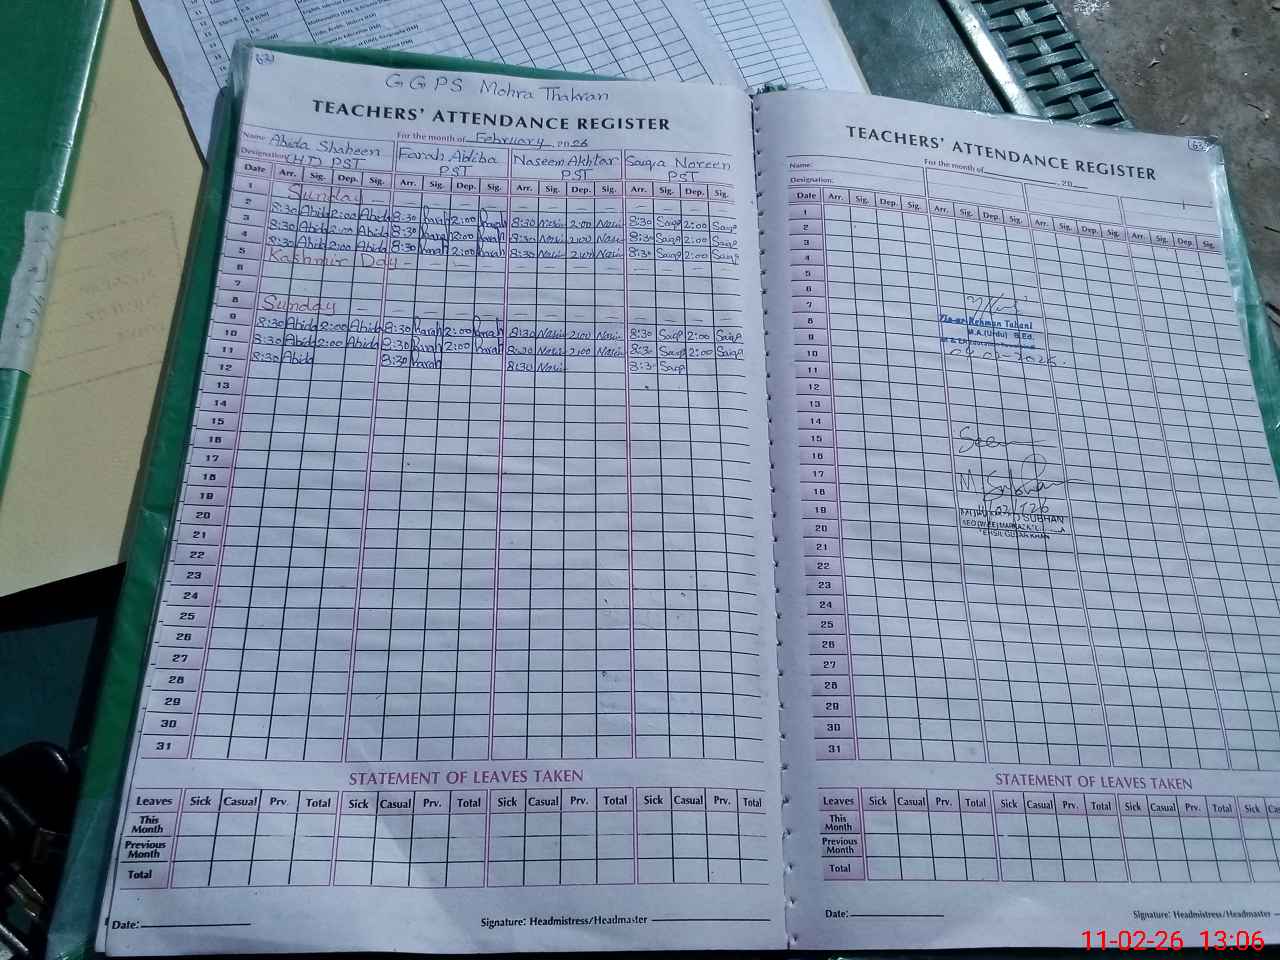 GGPS Mohra Thakran
TEACHERS' ATTENDANCE REGISTER
For the month of February, 2026
Name: Abida Shaheen Farah Abiba Naseem Akhtar Saiqa Noreen
Designation: (HT) PST PST PST PST
Date Arr. Sig. Dep. Sig. Arr. Sig. Dep. Sig. Arr. Sig. Dep. Sig. Arr. Sig. Dep. Sig.
1 Sunday
2 8:30 Abida 2:00 Abida 8:30 Farah 2:00 Farah 8:30 Nasim 2:00 Nasim 8:30 Saiqa 2:00 Saiqa
3 8:30 Abida 2:00 Abida 8:30 Farah 2:00 Farah 8:30 Nasim 2:00 Nasim 8:30 Saiqa 2:00 Saiqa
4 8:30 Abida 2:00 Abida 8:30 Farah 2:00 Farah 8:30 Nasim 2:00 Nasim 8:30 Saiqa 2:00 Saiqa
5 Kashmir Day
6
7
8 Sunday
9 8:30 Abida 2:00 Abida 8:30 Farah 2:00 Farah 8:30 Nasim 2:00 Nasim 8:30 Saiqa 2:00 Saiqa
10 8:30 Abida 2:00 Abida 8:30 Farah 2:00 Farah 8:30 Nasim 2:00 Nasim 8:30 Saiqa 2:00 Saiqa
11 8:30 Abida 8:30 Farah 8:30 Nasim 8:30 Saiqa
12
13
14
15
16
17
18
19
20
21
22
23
24
25
26
27
28
29
30
31
STATEMENT OF LEAVES TAKEN
Leaves Sick Casual Prv. Total Sick Casual Prv. Total Sick Casual Prv. Total Sick Casual Prv. Total
This Month
Previous Month
Total
Date: Signature: Headmistress/Headmaster
TEACHERS' ATTENDANCE REGISTER
Name: For the month of , 20
Designation:
Date Arr. Sig. Dep. Sig. Arr. Sig. Dep. Sig. Arr. Sig. Dep. Sig. Arr. Sig. Dep. Sig.
1
2
3
4
5
6
7
8 Rehman Tabani
9 M.A (Urdu) B.Ed.
10 04-02-2026
11
12
13
14
15 Seen
16
17 M Subhan
18
19 SUBHAN
20 TEHSIL GUJAR KHAN
21
22
23
24
25
26
27
28
29
30
31
STATEMENT OF LEAVES TAKEN
Leaves Sick Casual Prv. Total Sick Casual Prv. Total Sick Casual Prv. Total Sick Cas
This Month
Previous Month
Total
Date: Signature: Headmistress/Head
11-02-26 13:06